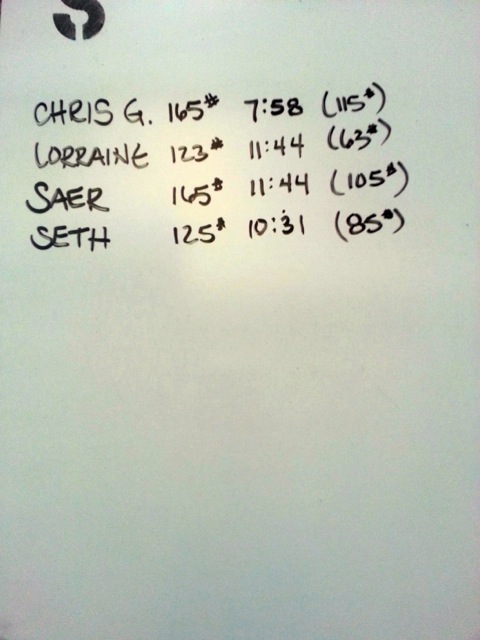 CHRIS G. 165# 7:58 (115#)
LORRAINE 123# 11:44 (63#)
SAER 165# 11:44 (105#)
SETH 125# 10:31 (85#)